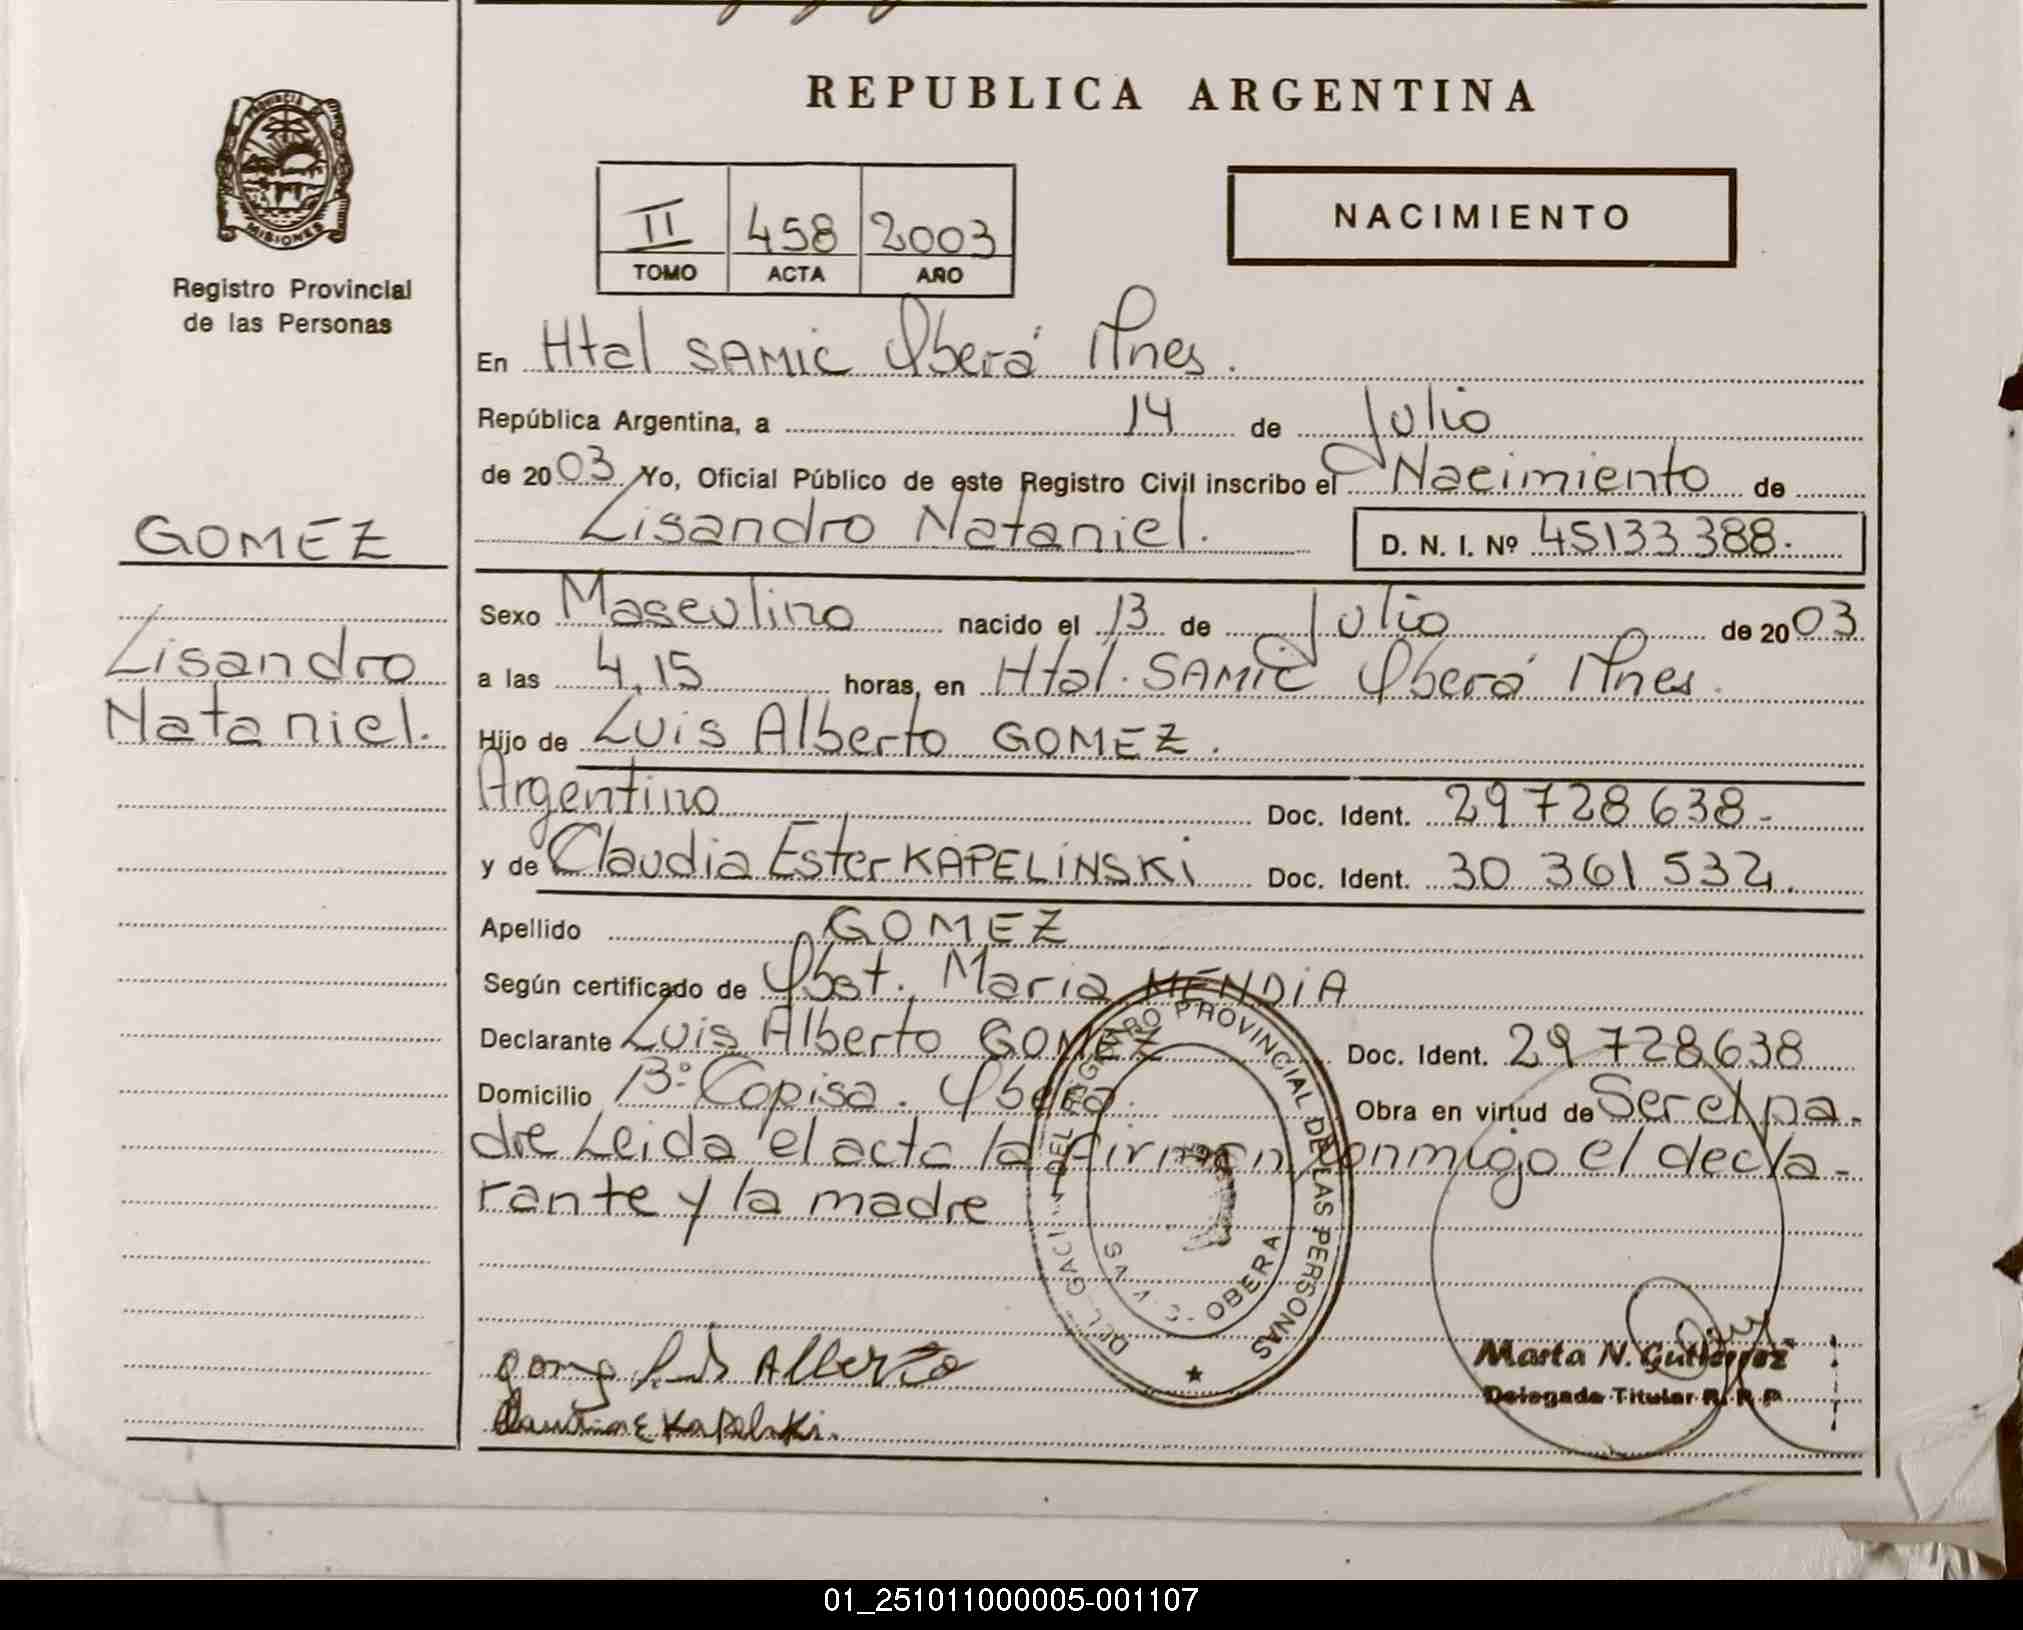 REPUBLICA ARGENTINA
PROVINCIA DE MISIONES
Registro Provincial
de las Personas
II 458 2003
TOMO ACTA AÑO
NACIMIENTO
En Htal SAMIC Oberá Mnes.
República Argentina, a 14 de Julio
de 2003 Yo, Oficial Público de este Registro Civil inscribo el Nacimiento de
Lisandro Nataniel. D. N. I. Nº 45133388.
GOMEZ
Lisandro
Nataniel.
Sexo Masculino nacido el 13 de Julio de 2003
a las 4,15 horas, en Htal. SAMIC Oberá Mnes.
Hijo de Luis Alberto GOMEZ.
Argentino Doc. Ident. 29728638-
y de Claudia Ester KAPELINSKI Doc. Ident. 30 361 532.
Apellido GOMEZ
Según certificado de Obst. Maria MENDIA
Declarante Luis Alberto GOMEZ Doc. Ident. 29 728638
Domicilio Bº Copisa. Oberá. Obra en virtud de Ser el pa-
dre Leida el acta la firman conmigo el decla-
rante y la madre
DEL REGISTRO PROVINCIAL DE LAS PERSONAS
OBERA
gomez Luis Alberto
Claudia E Kapelski.
Marta N. Gutierrez
Delegada Titular R. P. P.
01_251011000005-001107